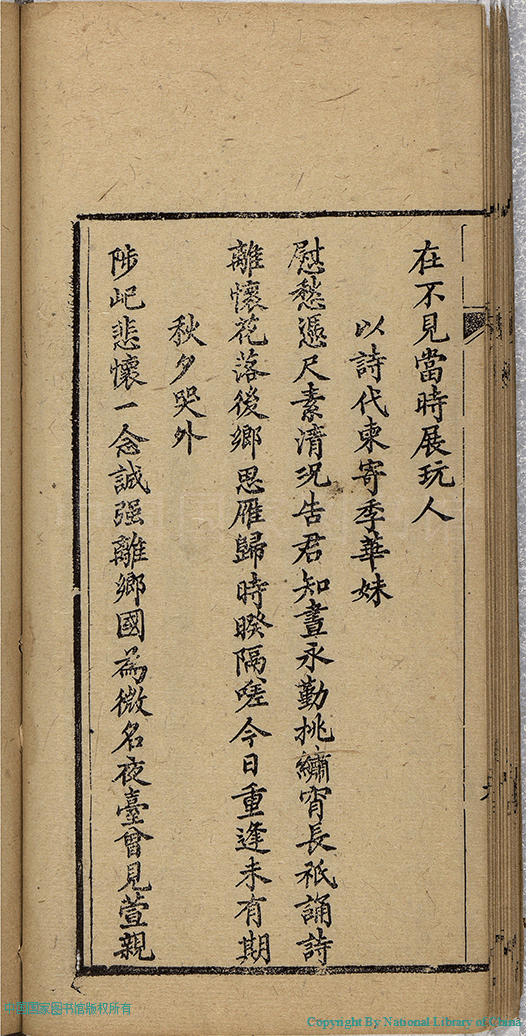 在不見當時展玩人
以詩代柬寄季華妹
慰愁憑尺素清况告君知晝永勤挑繡宵長祇誦詩
離懷花落後鄉思雁歸時暌隔嗟今日重逢未有期
秋夕哭外
陟屺悲懷一念誠强離鄉國為微名夜臺曾見萱親
中国国家图书馆版权所有
Copyright By National Library of China